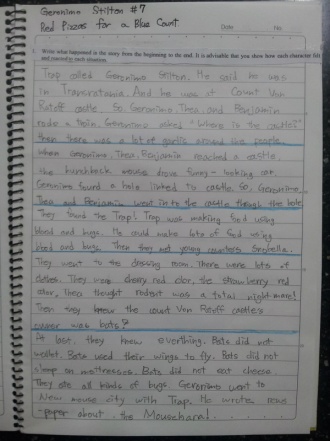 Geronimo Stilton #7
Red Pizzas for a Blue Count
Date No.
1. Write what happened in the story from the beginning to the end. It is advisable that you show how each character felt
and reacted in each situation.
Trap called Geronimo Stilton. He said he was
in Transratania. And he was at Count Von
Ratoff castle. So, Geronimo, Thea, and Benjamin
rode a train. Geronimo asked "Where is the castle?"
then there was a lot of garlic around the people.
When Geronimo, Thea, Benjamin reached a castle,
the hunchback mouse drove funny-looking car.
Geronimo found a hole linked to castle. So, Geronimo,
Thea and Benjamin went into the castle through the hole.
They found the Trap! Trap was making food using
blood and bugs. He could make lots of food using
blood and bugs. Then they met young counters Snobella.
They went to the dressing room. There were lots of
clothes. They were cherry red color, the strawberry red
color, Thea thought rodent was a total nightmare!
Then they knew the count Von Ratoff castle's
owner was bats?
At lose, they knew everthing. Bats did not
walk. Bats used their wings to fly. Bats did not
sleep on mattresses. Bats did not eat cheese.
They ate all kinds of bugs. Geronimo went to
New mouse city with Trap. He wrote news
paper about the Mousehara!